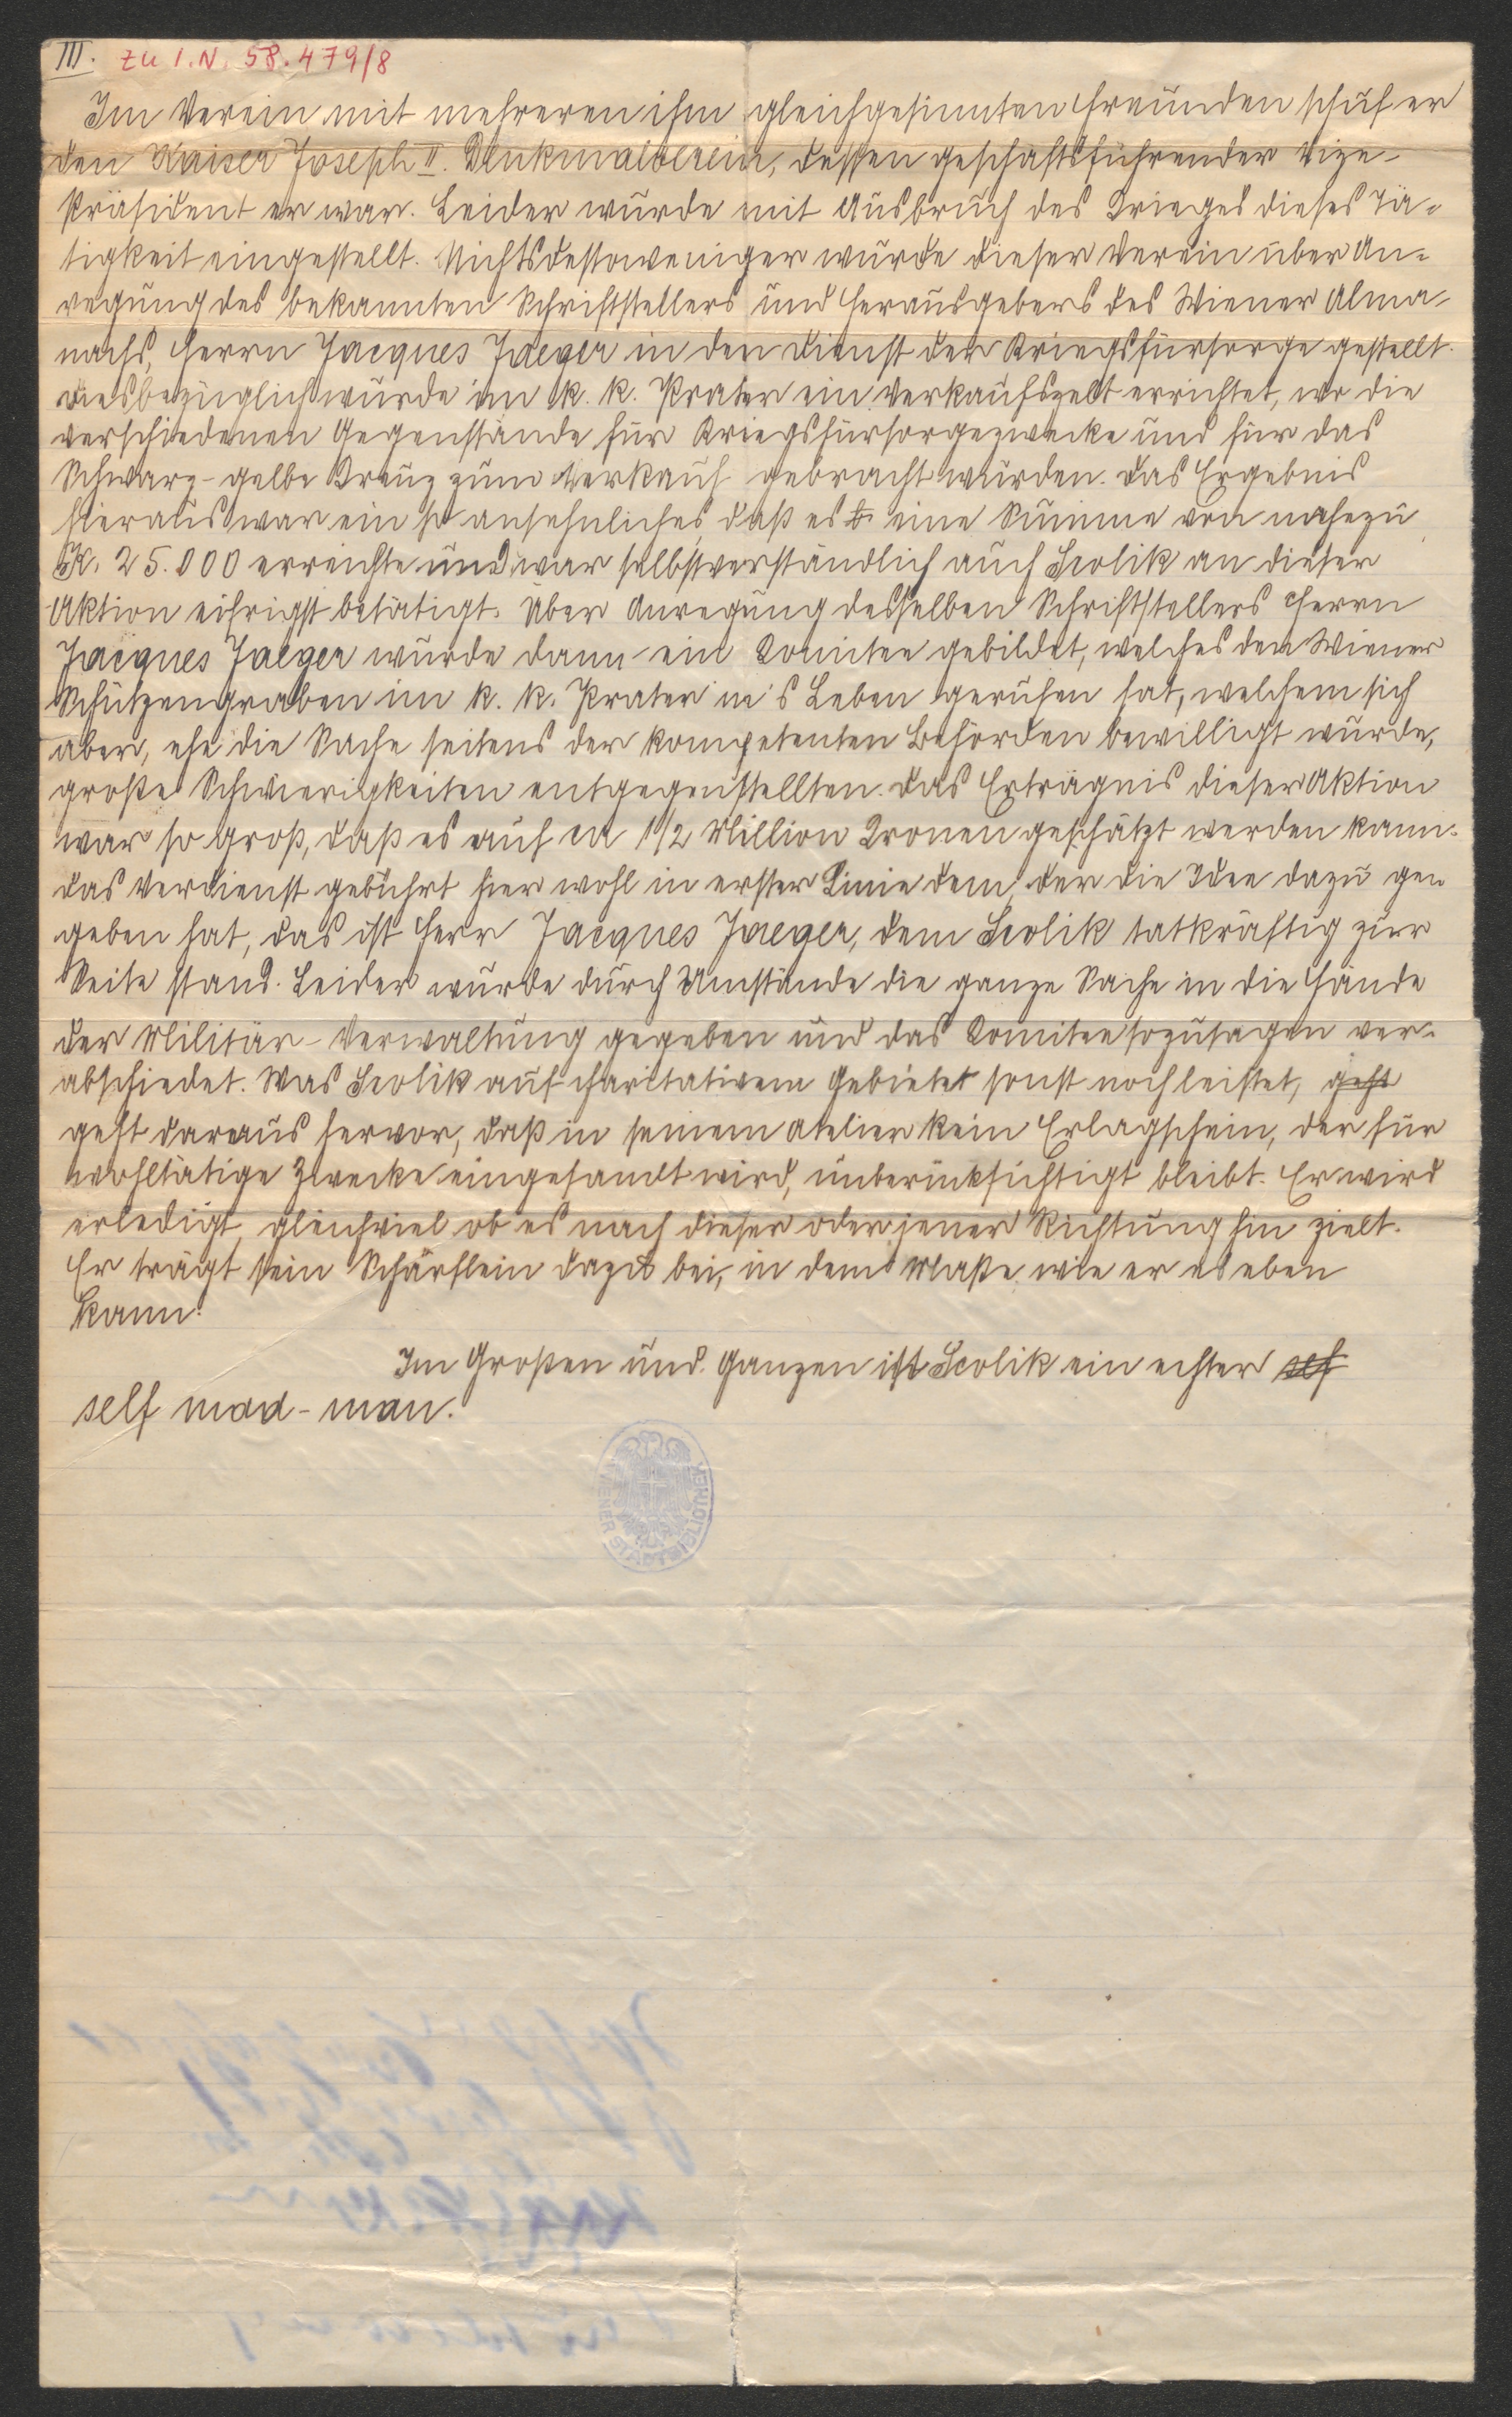 III. zu I.N. 58.479/8
Im Verein mit mehreren ihm gleichgesinnten Freunden schuf er
den Kaiser Joseph II. Denkmalverein, dessen geschäftsführender Vize-
präsident er war. Leider wurde mit Ausbruch des Krieges dieses Tä=
tigkeit eingestellt. Nichtsdestoweniger wurde dieser Verein über An=
regung des bekannten Schriftstellers und Herausgebers des Wiener Alma-
nachs, Herrn Jacques Jaeger in den Dienst der Kriegsfürsorge gestellt.
Diesbezüglich wurde im k. k. Prater ein Verkaufszelt errichtet, wo die
verschiedenen Gegenstände für Kriegsfürsorgezwecke und für das
Schwarz-gelbe Kreuz zum Verkauf gebracht wurden. Das Ergebnis
hieraus war ein so ansehnliches, daß es eine Summe von nahezu
K. 25.000 erreichte und war selbstverständlich auch Scolik an dieser
Aktion eifrigst betätigt. Über Anregung desselben Schriftstellers Herrn
Jacques Jaeger wurde dann ein Komitee gebildet, welches den Wiener
Schützengraben im k. k. Prater in's Leben gerufen hat, welchem sich
aber, ehe die Sache seitens der kompetenten Behörden bewilligt wurde,
große Schwierigkeiten entgegenstellten. Das Erträgnis dieser Aktion
war so groß, daß es auf ca 1/2 Million Kronen geschätzt werden kann.
Das Verdienst gebührt hier wohl in erster Linie dem, der die Idee dazu ge=
geben hat, das ist Herr Jacques Jaeger, dem Scolik tatkräftig zur
Seite stand. Leider wurde durch Umstände die ganze Sache in die Hände
der Militär-Verwaltung gegeben und das Komitee sozusagen ver=
abschiedet. Was Scolik auf charitativem Gebietet sonst noch leistet, geht
geht daraus hervor, daß in seinem Atelier kein Erlagschein, der für
wohltätige Zwecke eingesandt wird, unberücksichtigt bleibt. Er wird
erledigt, gleichviel ob es nach dieser oder jener Richtung hin zielt.
Er trägt sein Schärflein dazu bei, in dem Maße wie er es eben
kann.
Im Großen und Ganzen ist Scolik ein echter self
self mad-man.
WIENER STADTBIBLIOTHEK